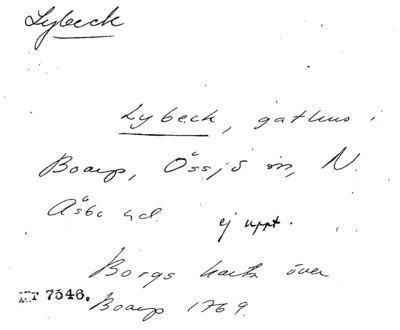 Lybeck
Lybeck, gathus i
Boarp, Össjö sn, N.
Åsbo hd. ej uppt.
Borgs karta över
MT 7546. Boarp 1769.